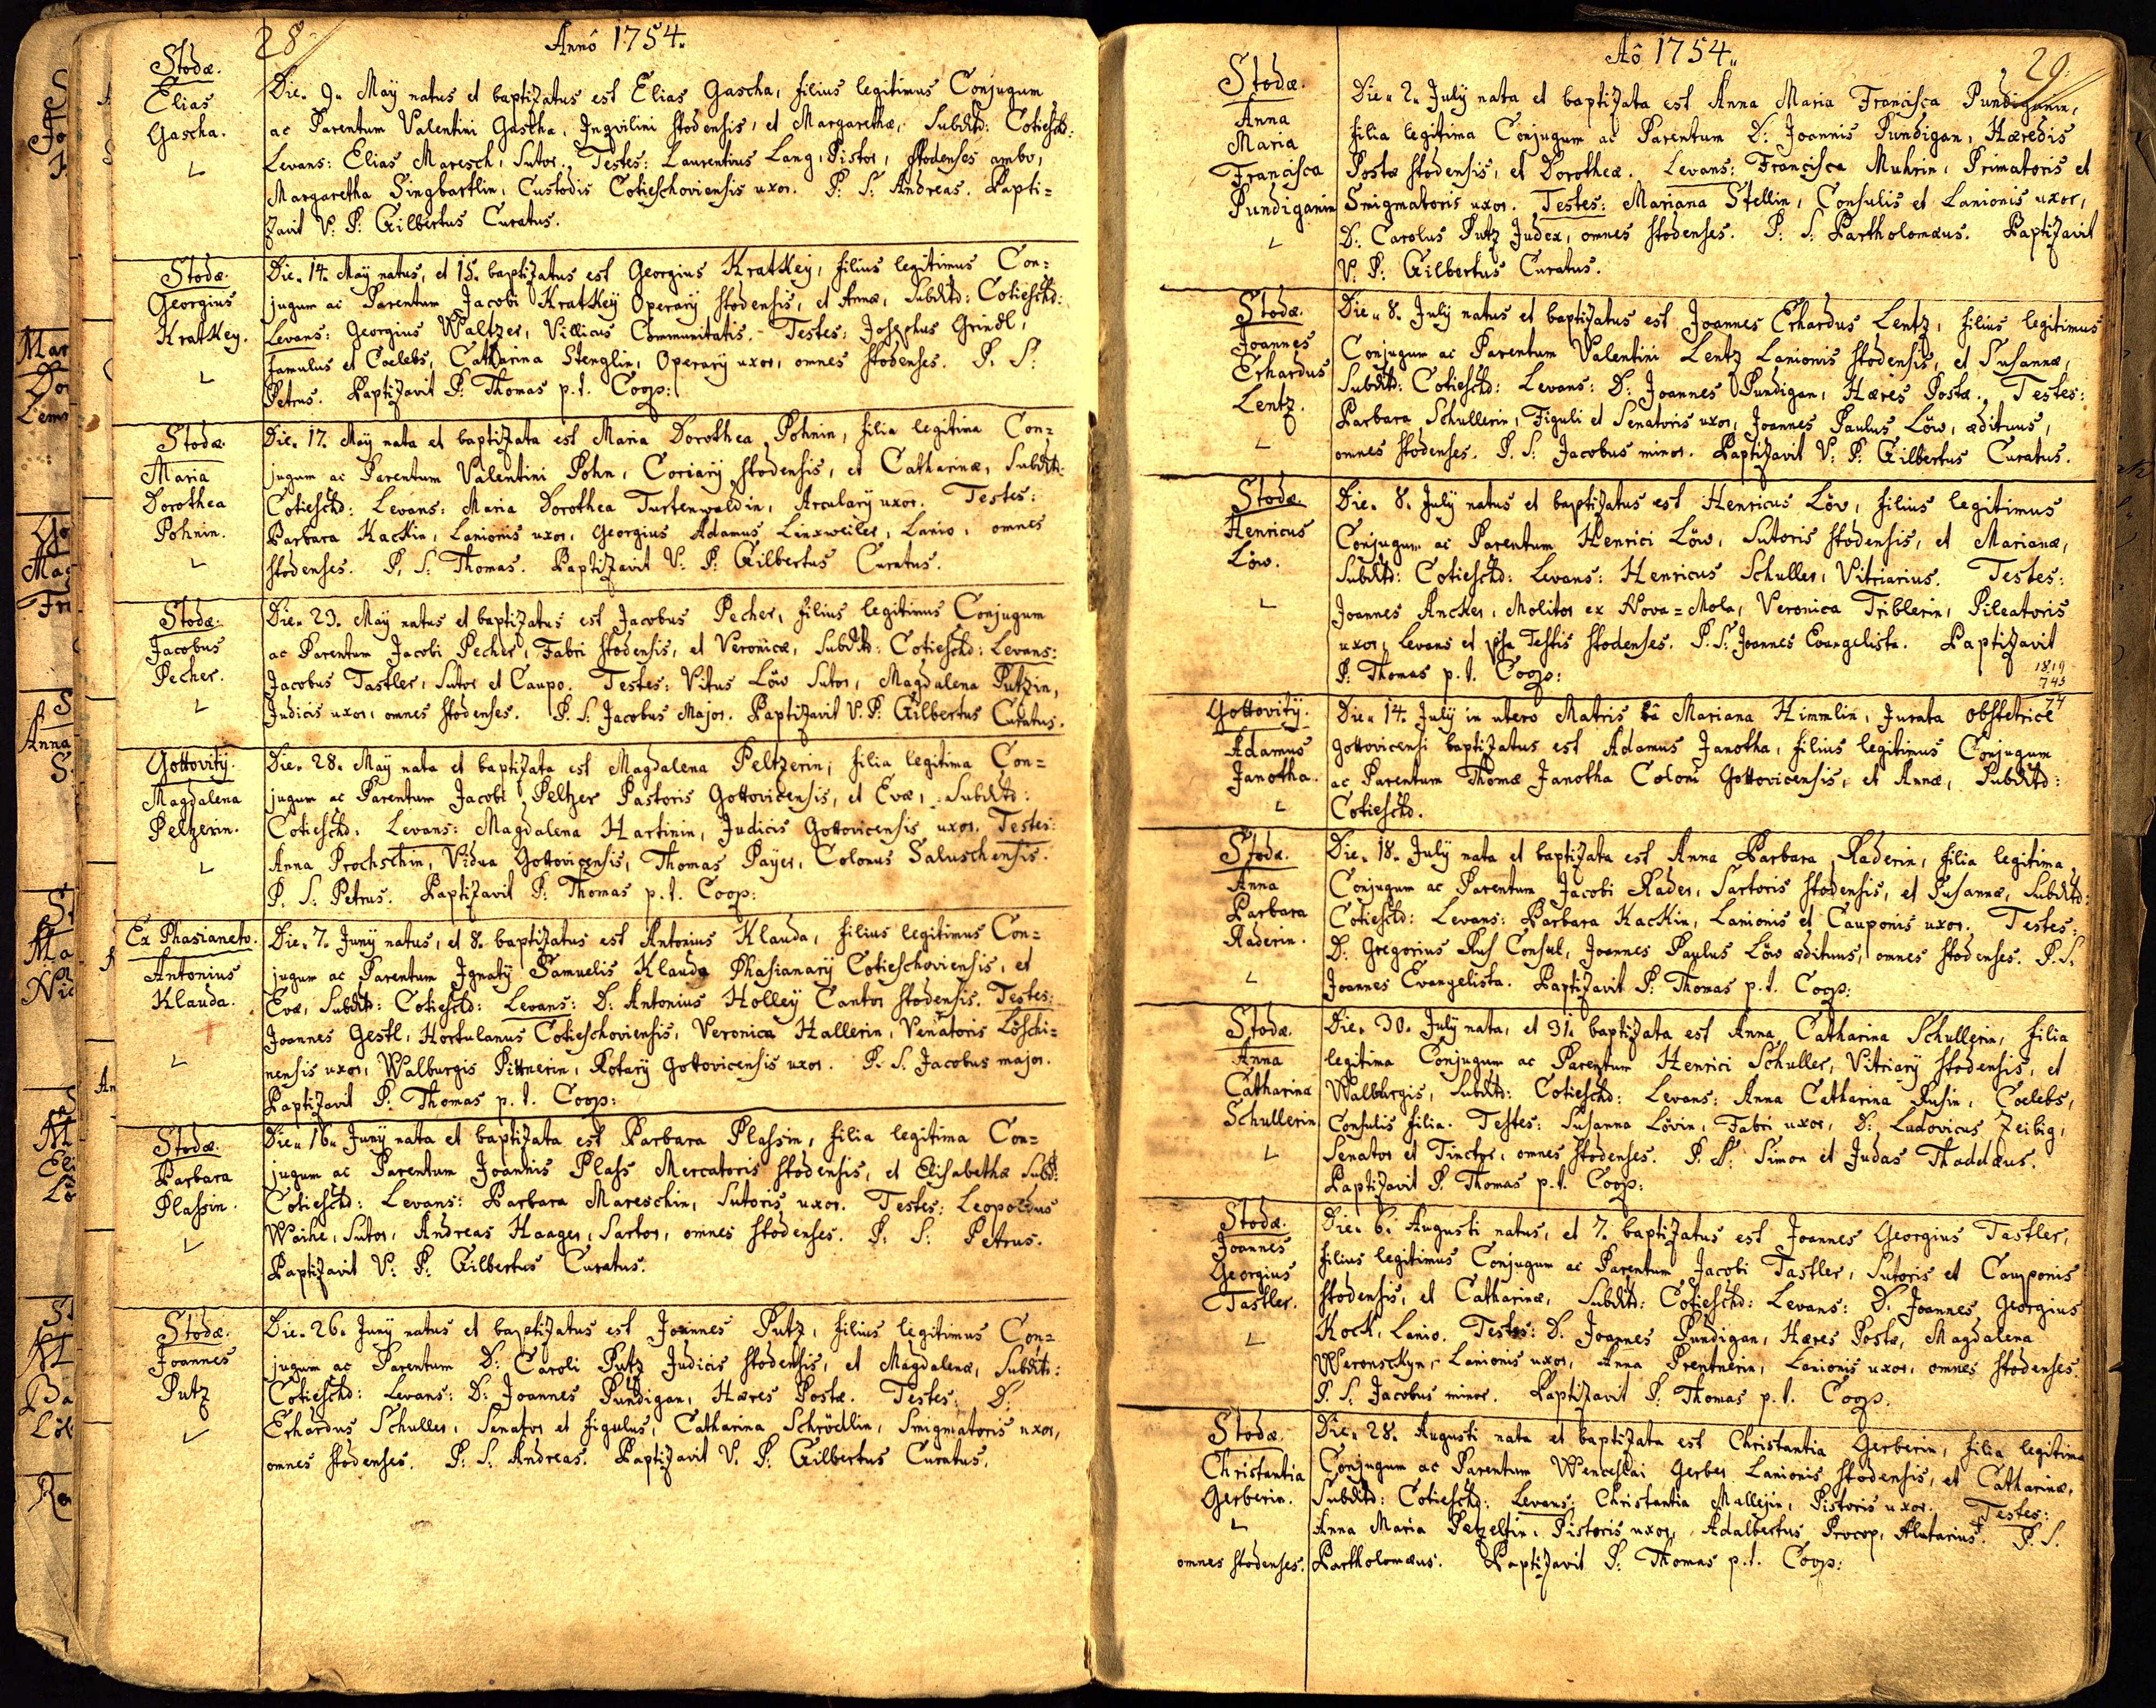 28
Annô 1754.
Stodæ.
Elias
Gascha.
Die. 9. Maÿ natus et baptizatus est Elias Gascha, filius legitimus Conjugum
ac Parentum Valentini Gascha, Inqvilini stodensis, et Margarethæ, Subditd: Cotieschd:
Levans: Elias Maresch, Sutor. Testes: Laurentius Lang, Pistor, Stodenses ambo,
Margaretha Singbartlin, Custodis Cotieschoviensis uxor. P: S: Andreas. Bapti=
zavit V: P: Gilbertus Curatus.
Stodæ.
Georgius
Kratkeÿ.
Die. 14. Maÿ natus, et 15. baptizatus est Georgius Kratkeÿ, filius legitimus Con=
jugum ac Parentum Jacobi Kratkeÿ Operarÿ stodensis, et Annæ, Subditd: Cotieschd:
Levans: Georgius Waltzer, Villicus Communitatis. Testes: Josephus Grindl,
famulus et Coelebs, Catharina Stenglin, Operarÿ uxor, omnes stodenses. P. S:
Petrus. Baptizavit P: Thomas p. t. Coop:
Stodæ.
Maria
Dorothea
Pohnin.
Die. 17. Maÿ nata et baptizata est Maria Dorothea Pohnin, filia legitima Con=
jugum ac Parentum Valentini Pohn, Coriarÿ stodensis, et Catharinæ, Subditd:
Cotieschd: Levans: Maria Dorothea Turtenwaldin, Arcularÿ uxor. Testes:
Barbara Kackin, Lanionis uxor, Georgius Adamus Linxweiler, Lanio, omnes
stodenses. P. S: Thomas. Baptizavit V: P: Gilbertus Curatus.
Stodæ.
Jacobus
Pecher.
Die. 23. Maÿ natus et baptizatus est Jacobus Pecher, filius legitimus Conjugum
ac Parentum Jacobi Pecher, Fabri stodensis, et Veronicæ, Subditd: Cotieschd: Levans:
Jacobus Tastler, Sutor et Caupo. Testes: Vitus Löw Sutor, Magdalena Putzin,
Judicis uxor, omnes stodenses. P. S: Jacobus Major. Baptizavit V. P: Gilbertus Curatus.
Gottovitÿ.
Magdalena
Pelzerin.
Die. 28. Maÿ nata et baptizata est Magdalena Peltzerin, filia legitima Con=
jugum ac Parentum Jacobi Peltzer Pastoris Gottovicensis, et Evæ, Subditd:
Cotieschd: Levans: Magdalena Hartinin, Judicis Gottovicensis uxor. Testes:
Anna Prochschin, Vidua Gottovicensis, Thomas Paÿer, Colonus Saluschensis.
P. S: Petrus. Baptizavit P: Thomas p. t. Coop:
Ex Phasianeto.
Antonius
Klauda.
Die. 7. Junÿ natus, et 8. baptizatus est Antonius Klauda, filius legitimus Con=
jugum ac Parentum Ignatÿ Samuelis Klauda Phasianarÿ Cotieschoviensis, et
Evæ, Subditd: Cotieschd: Levans: D: Antonius Holleÿ Cantor stodensis. Testes:
Joannes Gestl, Hortulanus Cotieschoviensis, Veronica Hallerin, Venatoris Löschi=
nensis uxor, Walburgis Pittnerin, Rotarÿ Gottovicensis uxor. P. S. Jacobus major.
Baptizavit P. Thomas p. t. Coop:
Stodæ.
Barbara
Plassin.
Die. 16. Junÿ nata et baptizata est Barbara Plassin, filia legitima Con=
jugum ac Parentum Joannis Plass Mercatoris stodensis, et Elisabethæ Subd:
Cotieschd: Levans: Barbara Mareschin, Sutoris uxor. Testes: Leopoldus
Waihe, Sutor, Andreas Haager, Sartor, omnes stodenses. P. S: Petrus.
Baptizavit V: P: Gilbertus Curatus.
Stodæ.
Joannes
Putz
Die. 26. Junÿ natus et baptizatus est Joannes Putz, filius legitimus Con=
jugum ac Parentum D: Caroli Putz Judicis stodensis, et Magdalenæ, Subditd:
Cotieschd: Levans: D: Joannes Pundigan, Hæres Postæ. Testes: D:
Erhardus Schuller, Senator et figulus, Catharina Schrödlin, Smigmatoris uxor,
omnes stodenses. P: S: Andreas. Baptizavit V. P: Gilbertus Curatus.
Aô 1754.
29.
Stodæ.
Anna
Maria
Francisca
Pundiganin
Die. 2. Julÿ nata et baptizata est Anna Maria Francisca Pundiganin,
filia legitima Conjugum ac Parentum D: Joannis Pundigan, Hæredis
Postæ stodensis, et Dorotheæ. Levans: Francisca Muhrin, Primatoris et
Smigmatoris uxor. Testes: Mariana Stellin, Consulis et Lanionis uxor,
D: Carolus Putz Judex, omnes stodenses. P: S: Bartholomæus. Baptizavit
V. P: Gilbertus Curatus.
Stodæ.
Joannes
Erhardus
Lentz.
Die. 8. Julÿ natus et baptizatus est Joannes Erhardus Lentz, filius legitimus
Conjugum ac Parentum Valentini Lentz Lanionis stodensis, et Susannæ,
Subditd: Cotieschd: Levans: D: Joannes Pundigan, Hæres Postæ. Testes:
Barbara Schullerin, Figuli et Senatoris uxor, Joannes Paulus Löw, ædituus,
omnes stodenses. P. S: Jacobus minor. Baptizavit V: P: Gilbertus Curatus.
Stodæ.
Henricus
Löw.
Die. 8. Julÿ natus et baptizatus est Henricus Löw, filius legitimus
Conjugum ac Parentum Henrici Löw, Sutoris stodensis, et Marianæ,
Subditd: Cotieschd: Levans: Henricus Schuller, Vitriarius. Testes:
Joannes Ancker, Molitor ex Nova=Mola, Veronica Triblerin, Pileatoris
uxor, Levans et ipsa Testis stodenses. P. S: Joannes Evangelista. Baptizavit
P: Thomas p. t. Coop:
1819
745
74
Gottovitÿ.
Adamus
Janotha.
Die. 14. Julÿ in utero Matris â Mariana Himmlin, Jurata obstetrice
Gottovicensi baptizatus est Adamus Janotha, filius legitimus Conjugum
ac Parentum Thomæ Janotha Coloni Gottovicensis, et Annæ, Subditd:
Cotieschd.
Stodæ.
Anna
Barbara
Raderin.
Die. 18. Julÿ nata et baptizata est Anna Barbara Raderin, filia legitima
Conjugum ac Parentum Jacobi Rader, Sartoris stodensis, et Susannæ, Subditd:
Cotieschd: Levans: Barbara Kackin, Lanionis et Cauponis uxor. Testes:
D: Gregorius Rus Consul, Joannes Paulus Löw ædituus, omnes stodenses. P. S.
Joannes Evangelista. Baptizavit P: Thomas p. t. Coop:
Stodæ.
Anna
Catharina
Schullerin
Die. 30. Julÿ nata, et 31. baptizata est Anna Catharina Schullerin, filia
legitima Conjugum ac Parentum Henrici Schuller, Vitriarÿ stodensis, et
Walburgis, Subditd: Cotieschd: Levans: Anna Catharina Rusin, Coelebs,
Consulis filia. Testes: Susanna Lövin, Fabri uxor, D: Ludovicus Zeibig,
Senator et Tinctor, omnes stodenses. P. S: Simon et Judas Thaddæus.
Baptizavit P. Thomas p. t. Coop:
Stodæ.
Joannes
Georgius
Tastler.
Die. 6. Augusti natus, et 7. baptizatus est Joannes Georgius Tastler,
filius legitimus Conjugum ac Parentum Jacobi Tastler, Sutoris et Cauponis
stodensis, et Catharinæ, Subditd: Cotieschd: Levans: D: Joannes Georgius
Kock, Lanio. Testes: D. Joannes Pundigan, Hæres Postæ, Magdalena
Weronsckyn, Lanionis uxor, Anna Prentnerin, Lanionis uxor, omnes stodenses.
P. S. Jacobus minor. Baptizavit P. Thomas p. t. Coop.
Stodæ.
Christantia
Gerberin.
Die. 28. Augusti nata et baptizata est Christantia Gerberin, filia legitima
Conjugum ac Parentum Wenceslai Gerber Lanionis stodensis, et Catharinæ,
Subditd: Cotieschd: Levans: Christantia Mallejin, Pistoris uxor. Testes:
Anna Maria Petzeltin, Pistoris uxor, Adalbertus Procop, Alutarius. P. S.
omnes stodenses. Bartholomæus. Baptizavit P: Thomas p. t. Coop: